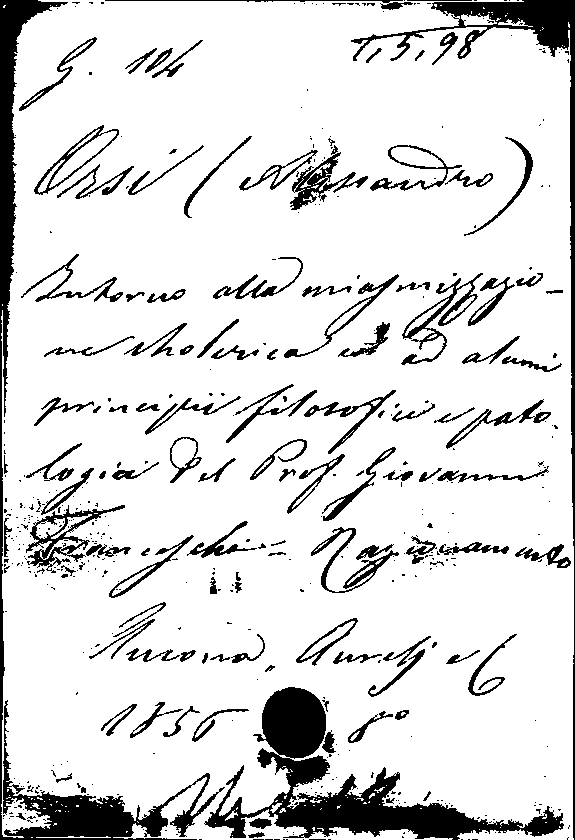 G. 104 1,5,98
Orsi (Alessandro)
Intorno alla miasmizzazio-
ne cholerica ed ad alcuni
principii filosofici e pato-
logici del Prof. Giovanni
Franceschi - Ragionamento
Ancona, Aurelj e C
1856 8°